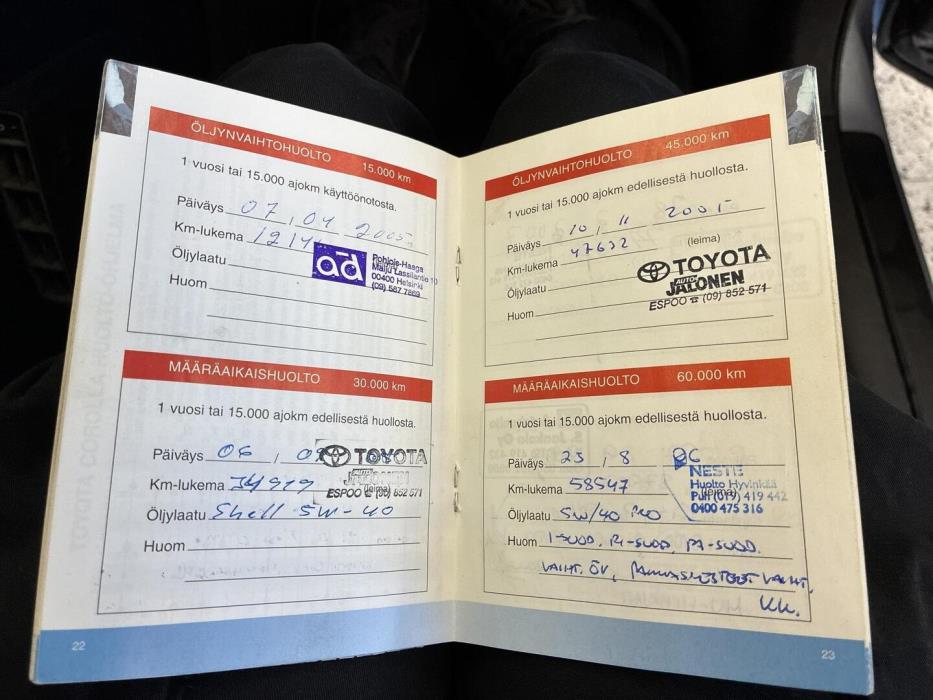 ÖLJYNVAIHTOHUOLTO 15.000 km
1 vuosi tai 15.000 ajokm käyttöönotosta.
Päiväys 07 / 04 2005
Km-lukema
Öljylaatu
Huom
ad
Pohjois-Haaga
Maiju Lassilantie 10
00400 Helsinki
(09) 587 7869
MÄÄRÄAIKAISHUOLTO 30.000 km
1 vuosi tai 15.000 ajokm edellisestä huollosta.
Päiväys 06 /
Km-lukema 34919
Öljylaatu Shell 5W-40
Huom
TOYOTA
AUTO
JALONEN
ESPOO ☎ (09) 852 571
(leima)
22
ÖLJYNVAIHTOHUOLTO 45.000 km
1 vuosi tai 15.000 ajokm edellisestä huollosta.
Päiväys 10 / 11 2005
Km-lukema 47632
(leima)
Öljylaatu
Huom
TOYOTA
AUTO
JALONEN
ESPOO ☎ (09) 852 571
MÄÄRÄAIKAISHUOLTO 60.000 km
1 vuosi tai 15.000 ajokm edellisestä huollosta.
Päiväys 23 / 8 06
Km-lukema 58547
(leima)
Öljylaatu 5W/40
Huom I-SUOD, RI-SUOD, PA-SUOD.
VAIHT. ÖV,
KK.
NESTE
Huolto Hyvinkää
Puh (019) 419 442
0400 475 316
23